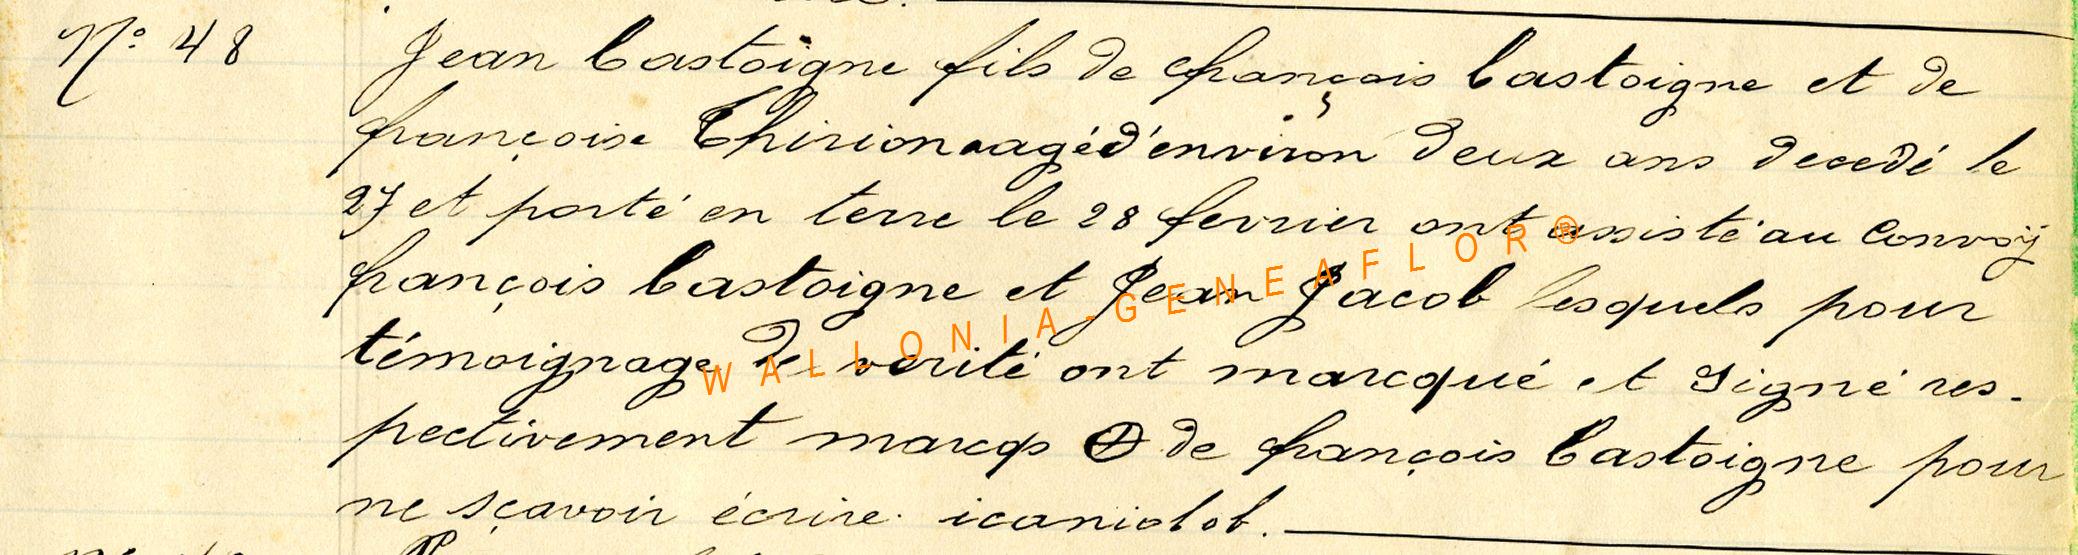 N° 48
Jean Castoigne fils de françois Castoigne et de
françoise Thirion agé d'environ deux ans decedé le
27 et porté en terre le 28 fevrier ont assisté au convoÿ
françois Castoigne et Jean Jacob lesquels pour
témoignage de verité ont marcqué et signé res-
pectivement marcqs de françois Castoigne pour
ne sçavoir écrire.
WALLONIA-GENEAFLOR®